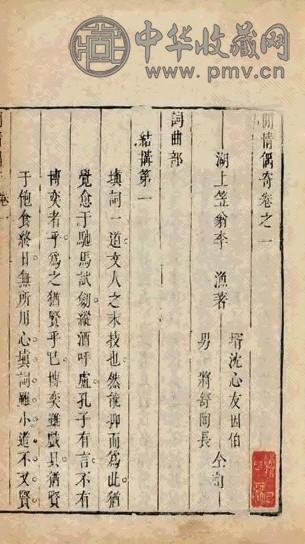 中华收藏网
www.pmv.cn
閒情偶寄卷之一
湖上笠翁李 漁著
壻沈心友因伯
男 將舒陶長 仝訂
詞曲部
結搆第一
填詞一道文人之末技也然能抑而為此猶
覺愈于馳馬試劍縱酒呼盧孔子有言不有
博奕者乎為之猶賢乎已博奕雖戲具猶賢
于飽食終日無所用心填詞雖小道不又賢